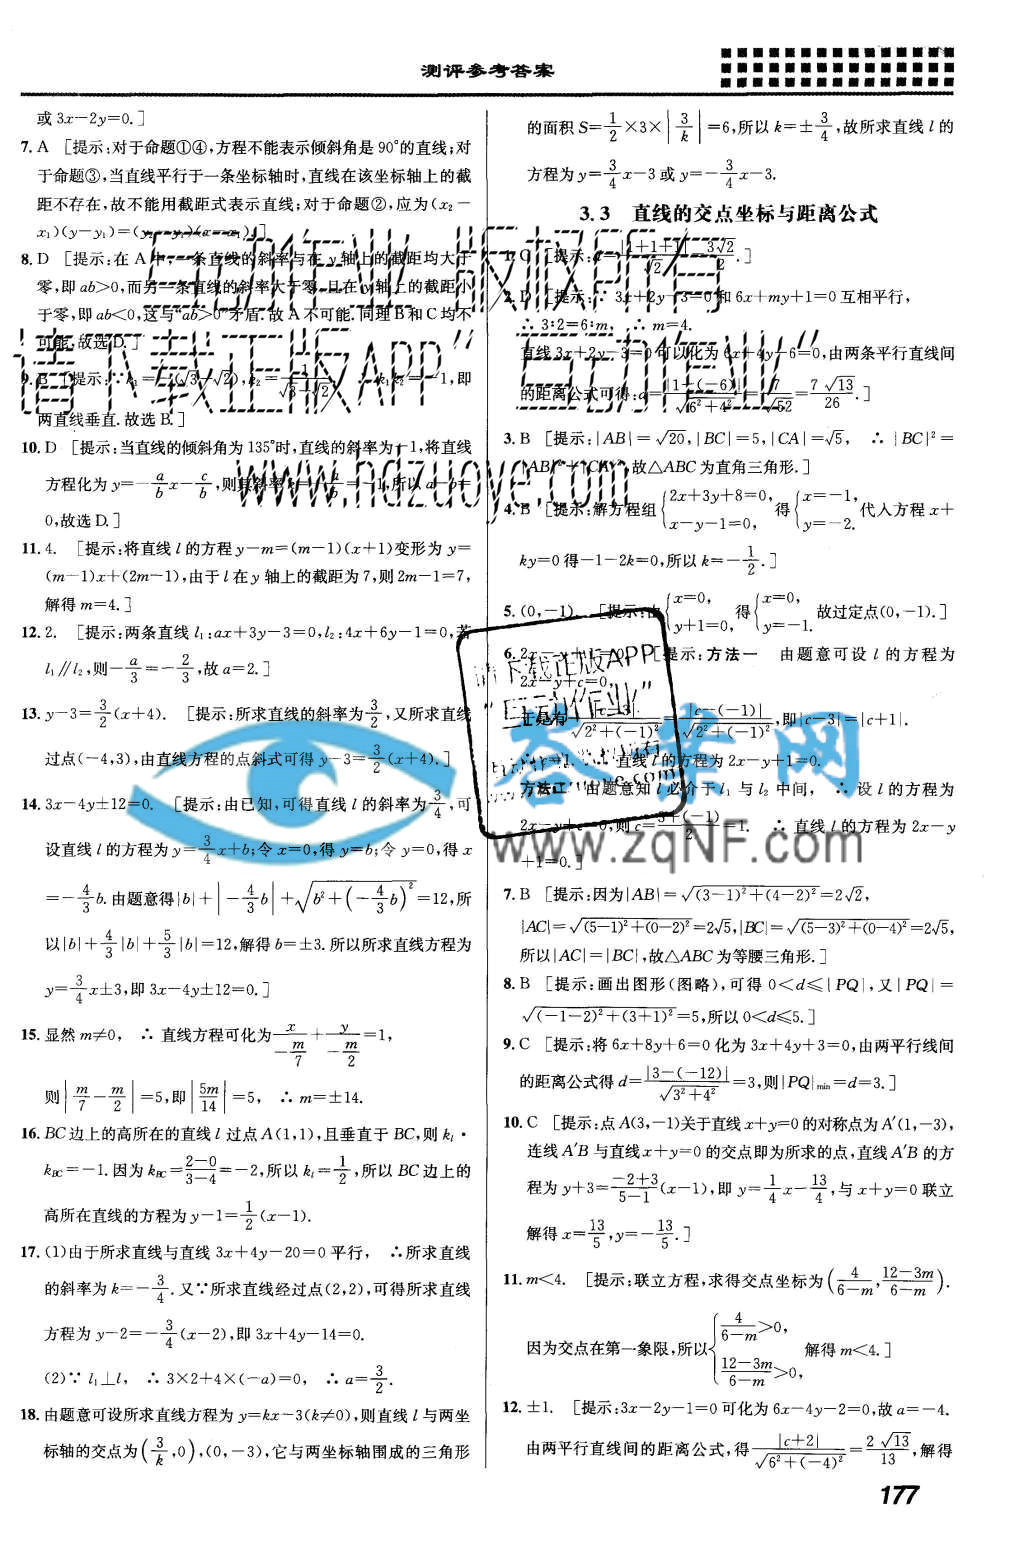 测评参考答案
或3x-2y=0.]
7. A [提示:对于命题①④,方程不能表示倾斜角是90°的直线;对
于命题③,当直线平行于一条坐标轴时,直线在该坐标轴上的截
距不存在,故不能用截距式表示直线;对于命题②,应为(x₂-
x₁)(y-y₁)=(y₂-y₁)(x-x₁).]
8. D [提示:在A中,一条直线的斜率与在y轴上的截距均大于
零,即ab>0,而另一条直线的斜率大于零,且在y轴上的截距小
于零,即ab<0,这与“ab>0”矛盾.故A不可能.同理B和C均不
可能,故选D.]
9. B [提示:
两直线垂直.故选B.]
10. D [提示:当直线的倾斜角为135°时,直线的斜率为-1,将直线
方程化为y=-a/b x-c/b,则其斜率k=-a/b=-1,所以a-b=
0,故选D.]
11. 4. [提示:将直线l的方程y-m=(m-1)(x+1)变形为y=
(m-1)x+(2m-1),由于l在y轴上的截距为7,则2m-1=7,
解得m=4.]
12. 2. [提示:两条直线l₁:ax+3y-3=0,l₂:4x+6y-1=0,若
l₁∥l₂,则-a/3=-2/3,故a=2.]
13. y-3=3/2(x+4). [提示:所求直线的斜率为3/2,又所求直线
过点(-4,3),由直线方程的点斜式可得y-3=3/2(x+4).]
14. 3x-4y±12=0. [提示:由已知,可得直线l的斜率为3/4,可
设直线l的方程为y=3/4x+b;令x=0,得y=b;令y=0,得x
=-4/3b.由题意得|b|+|-4/3b|+√(b²+(-4/3b)²)=12,所
以|b|+4/3|b|+5/3|b|=12,解得b=±3.所以所求直线方程为
y=3/4x±3,即3x-4y±12=0.]
15. 显然m≠0, ∴直线方程可化为x/(-m/7)+y/(-m/2)=1,
则|m/7-m/2|=5,即|5m/14|=5, ∴m=±14.
16. BC边上的高所在的直线l过点A(1,1),且垂直于BC,则kₗ·
k_BC=-1.因为k_BC=(2-0)/(3-4)=-2,所以kₗ=1/2,所以BC边上的
高所在直线的方程为y-1=1/2(x-1).
17. (1)由于所求直线与直线3x+4y-20=0平行, ∴所求直线
的斜率为k=-3/4.又∵所求直线经过点(2,2),可得所求直线
方程为y-2=-3/4(x-2),即3x+4y-14=0.
(2)∵l₁⊥l, ∴3×2+4×(-a)=0, ∴a=3/2.
18. 由题意可设所求直线方程为y=kx-3(k≠0),则直线l与两坐
标轴的交点为(3/k,0),(0,-3),它与两坐标轴围成的三角形
的面积S=1/2×3×|3/k|=6,所以k=±3/4,故所求直线l的
方程为y=3/4x-3或y=-3/4x-3.
3.3 直线的交点坐标与距离公式
1. C [提示:
2. D [提示:∵3x+2y-3=0和6x+my+1=0互相平行,
∴3:2=6:m, ∴m=4.
直线3x+2y-3=0可以化为6x+4y-6=0,由两条平行直线间
的距离公式可得:d=|1+(-6)|/√(6²+4²)=7/√52=7√13/26.]
3. B [提示:|AB|=√20,|BC|=5,|CA|=√5, ∴|BC|²=
|AB|²+|CA|²,故△ABC为直角三角形.]
4. B [提示:解方程组{2x+3y+8=0, x-y-1=0, 得{x=-1, y=-2. 代入方程x+
ky=0得-1-2k=0,所以k=-1/2.]
5. (0,-1). [提示:由{x=0, y+1=0, 得{x=0, y=-1. 故过定点(0,-1).]
6. 2x-y+1=0. [提示:方法一 由题意可设l的方程为
2x-y+c=0,
于是有|c-3|/√(2²+(-1)²)=|c-(-1)|/√(2²+(-1)²),即|c-3|=|c+1|.
∴c=1. ∴直线l的方程为2x-y+1=0.
方法二 由题意知l必介于l₁与l₂中间, ∴设l的方程为
2x-y+c=0,则c=(3+(-1))/2=1. ∴直线l的方程为2x-y
+1=0.]
7. B [提示:因为|AB|=√((3-1)²+(4-2)²)=2√2,
|AC|=√((5-1)²+(0-2)²)=2√5,|BC|=√((5-3)²+(0-4)²)=2√5,
所以|AC|=|BC|,故△ABC为等腰三角形.]
8. B [提示:画出图形(图略),可得0<d≤|PQ|,又|PQ|=
√((-1-2)²+(3+1)²)=5,所以0<d≤5.]
9. C [提示:将6x+8y+6=0化为3x+4y+3=0,由两平行线间
的距离公式得d=|3-(-12)|/√(3²+4²)=3,则|PQ|min=d=3.]
10. C [提示:点A(3,-1)关于直线x+y=0的对称点为A′(1,-3),
连线A′B与直线x+y=0的交点即为所求的点,直线A′B的方
程为y+3=(-2+3)/(5-1)(x-1),即y=1/4x-13/4,与x+y=0联立
解得x=13/5,y=-13/5.]
11. m<4. [提示:联立方程,求得交点坐标为(4/(6-m),(12-3m)/(6-m)).
因为交点在第一象限,所以{4/(6-m)>0, (12-3m)/(6-m)>0, 解得m<4.]
12. ±1. [提示:3x-2y-1=0可化为6x-4y-2=0,故a=-4.
由两平行直线间的距离公式,得|c+2|/√(6²+(-4)²)=2√13/13,解得
177
请下载正版APP”
“互动作业”
www.hdzuoye.com
答案网
www.zqNF.com